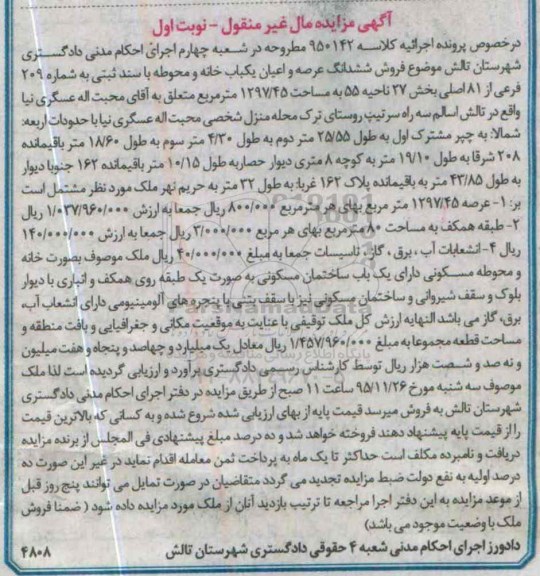 آگهی مزایده مال غیر منقول - نوبت اول
درخصوص پرونده اجرائیه کلاسه ۹۵۰۱۴۲ مطروحه در شعبه چهارم اجرای احکام مدنی دادگستری
شهرستان تالش موضوع فروش ششدانگ عرصه و اعیان یکباب خانه و محوطه با سند ثبتی به شماره ۲۰۹
فرعی از ۸۱ اصلی بخش ۲۷ ناحیه ۵۵ به مساحت ۱۲۹۷/۴۵ مترمربع متعلق به آقای محبت اله عسگری نیا
واقع در تالش اسالم سه راه سرتیپ روستای ترک محله منزل شخصی محبت اله عسگری نیا با حدودات اربعه:
شمالا: به چپر مشترک اول به طول ۲۵/۵۵ متر دوم به طول ۴/۳۰ متر سوم به طول ۱۸/۶۰ متر باقیمانده
۲۰۸ شرقا به طول ۱۹/۱۰ متر به کوچه ۸ متری دیوار حصاربه طول ۱۰/۱۵ متر باقیمانده ۱۶۲ جنوبا دیوار
به طول ۴۳/۸۵ متر به باقیمانده پلاک ۱۶۲ غربا: به طول ۳۲ متر به حریم نهر ملک مورد نظر مشتمل است
بر: ۱- عرصه ۱۲۹۷/۴۵ متر مربع بهای هر مترمربع ۸۰۰/۰۰۰ ریال جمعا به ارزش ۱/۰۳۷/۹۶۰/۰۰۰ ریال
۲- طبقه همکف به مساحت ۸۰ مترمربع بهای هر مربع ۳/۰۰۰/۰۰۰ ریال جمعا به ارزش ۱۴۰/۰۰۰/۰۰۰
ریال ۴- انشعابات آب ، برق ، گاز ، تاسیسات جمعا به مبلغ ۴۰/۰۰۰/۰۰۰ ریال ملک موصوف بصورت خانه
و محوطه مسکونی دارای یک باب ساختمان مسکونی به صورت یک طبقه روی همکف و انباری با دیوار
بلوک و سقف شیروانی و ساختمان مسکونی نیز با سقف بتنی با پنجره های آلومینیومی دارای انشعاب آب،
برق، گاز می باشد النهایه ارزش کل ملک توقیفی با عنایت به موقعیت مکانی و جغرافیایی و بافت منطقه و
مساحت قطعه مجموعا به مبلغ ۱/۴۵۷/۹۶۰/۰۰۰ ریال معادل یک میلیارد و چهاصد و پنجاه و هفت میلیون
و نه صد و شصت هزار ریال توسط کارشناس رسمی دادگستری برآورد و ارزیابی گردیده است لذا ملک
موصوف سه شنبه مورخ ۹۵/۱۱/۲۶ ساعت ۱۱ صبح از طریق مزایده در دفتر اجرای احکام مدنی دادگستری
شهرستان تالش به فروش میرسد قیمت پایه از بهای ارزیابی شده شروع شده و به کسانی که بالاترین قیمت
را از قیمت پایه پیشنهاد دهند فروخته خواهد شد و ده درصد مبلغ پیشنهادی فی المجلس از برنده مزایده
دریافت و نامبرده مکلف است حداکثر تا یک ماه به پرداخت ثمن معامله اقدام نماید در غیر این صورت ده
درصد اولیه به نفع دولت ضبط مزایده تجدید می گردد متقاضیان در صورت تمایل می توانند پنج روز قبل
از موعد مزایده به این دفتر اجرا مراجعه تا ترتیب بازدید آنان از ملک مورد مزایده داده شود ( ضمنا فروش
ملک با وضعیت موجود می باشد)
دادورز اجرای احکام مدنی شعبه ۴ حقوقی دادگستری شهرستان تالش ۴۸۰۸